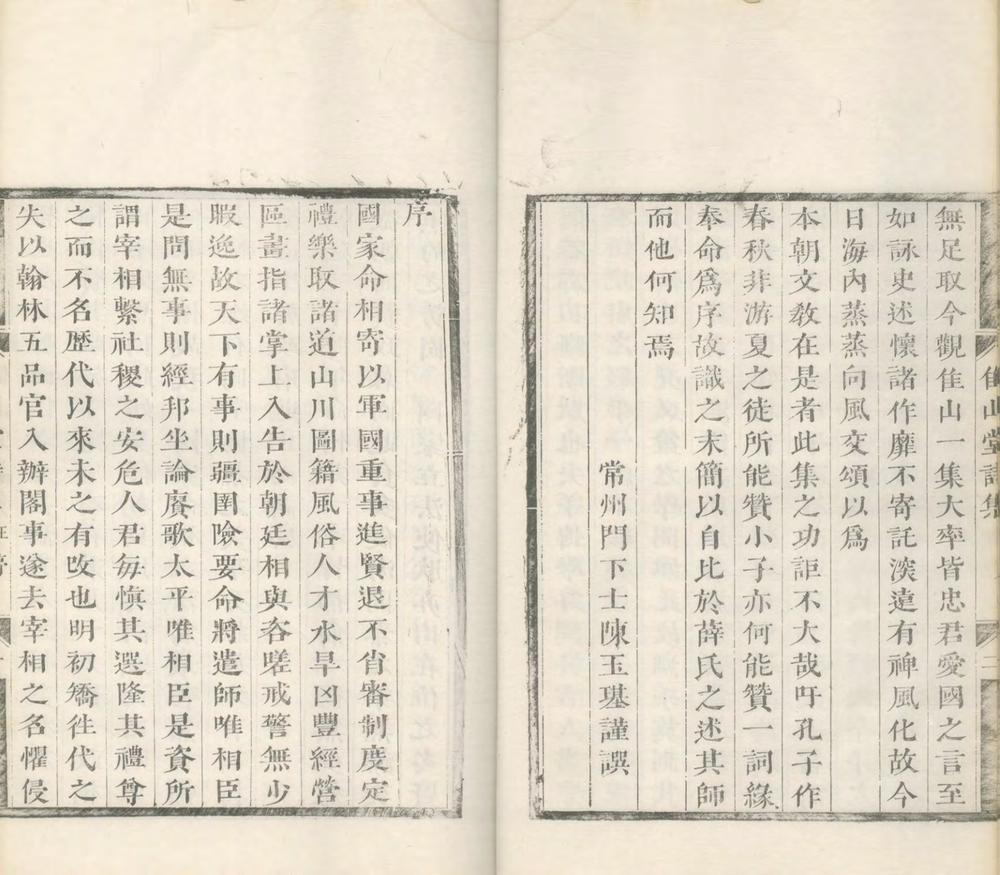 無足取今觀隹山一集大率皆忠君愛國之言至
如詠史述懷諸作靡不寄託淡遠有裨風化故今
日海內蒸蒸向風交頌以爲
本朝文敎在是者此集之功詎不大哉吁孔子作
春秋非游夏之徒所能贊小子亦何能贊一詞緣
奉命爲序故識之末簡以自比於薛氏之述其師
而他何知焉
常州門下士陳玉璂謹譔
序
國家命相寄以軍國重事進賢退不省審制度定
禮樂取諸道山川圖籍風俗人才水旱凶豐經營
區畫指諸掌上入告於朝廷相與咨嗟戒警無少
暇逸故天下有事則疆圉險要命將遣師唯相臣
是問無事則經邦坐論賡歌太平唯相臣是資所
謂宰相繫社稷之安危人君每愼其選隆其禮尊
之而不名歷代以來未之有攺也明初矯徃代之
失以翰林五品官入辦閣事遂去宰相之名懼侵